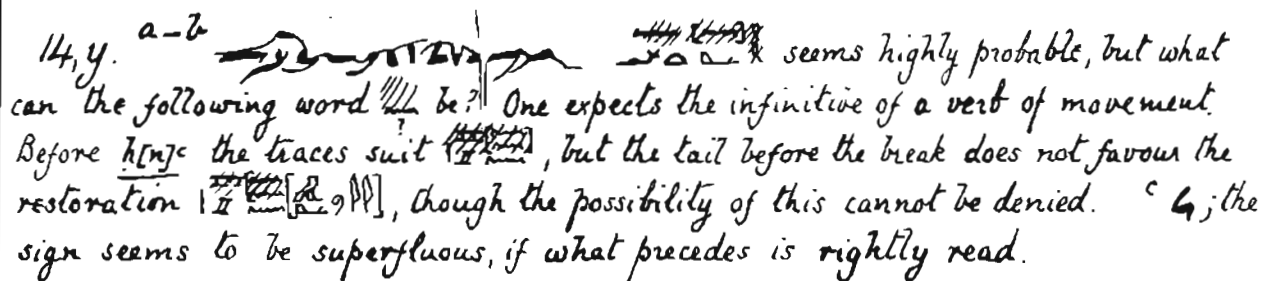 14,y. a–b seems highly probable, but what
can the following word be? One expects the infinitive of a verb of movement.
Before h[n]ᶜ the traces suit , but the tail before the break does not favour the
restoration , though the possibility of this cannot be denied. c ; the
sign seems to be superfluous, if what precedes is rightly read.